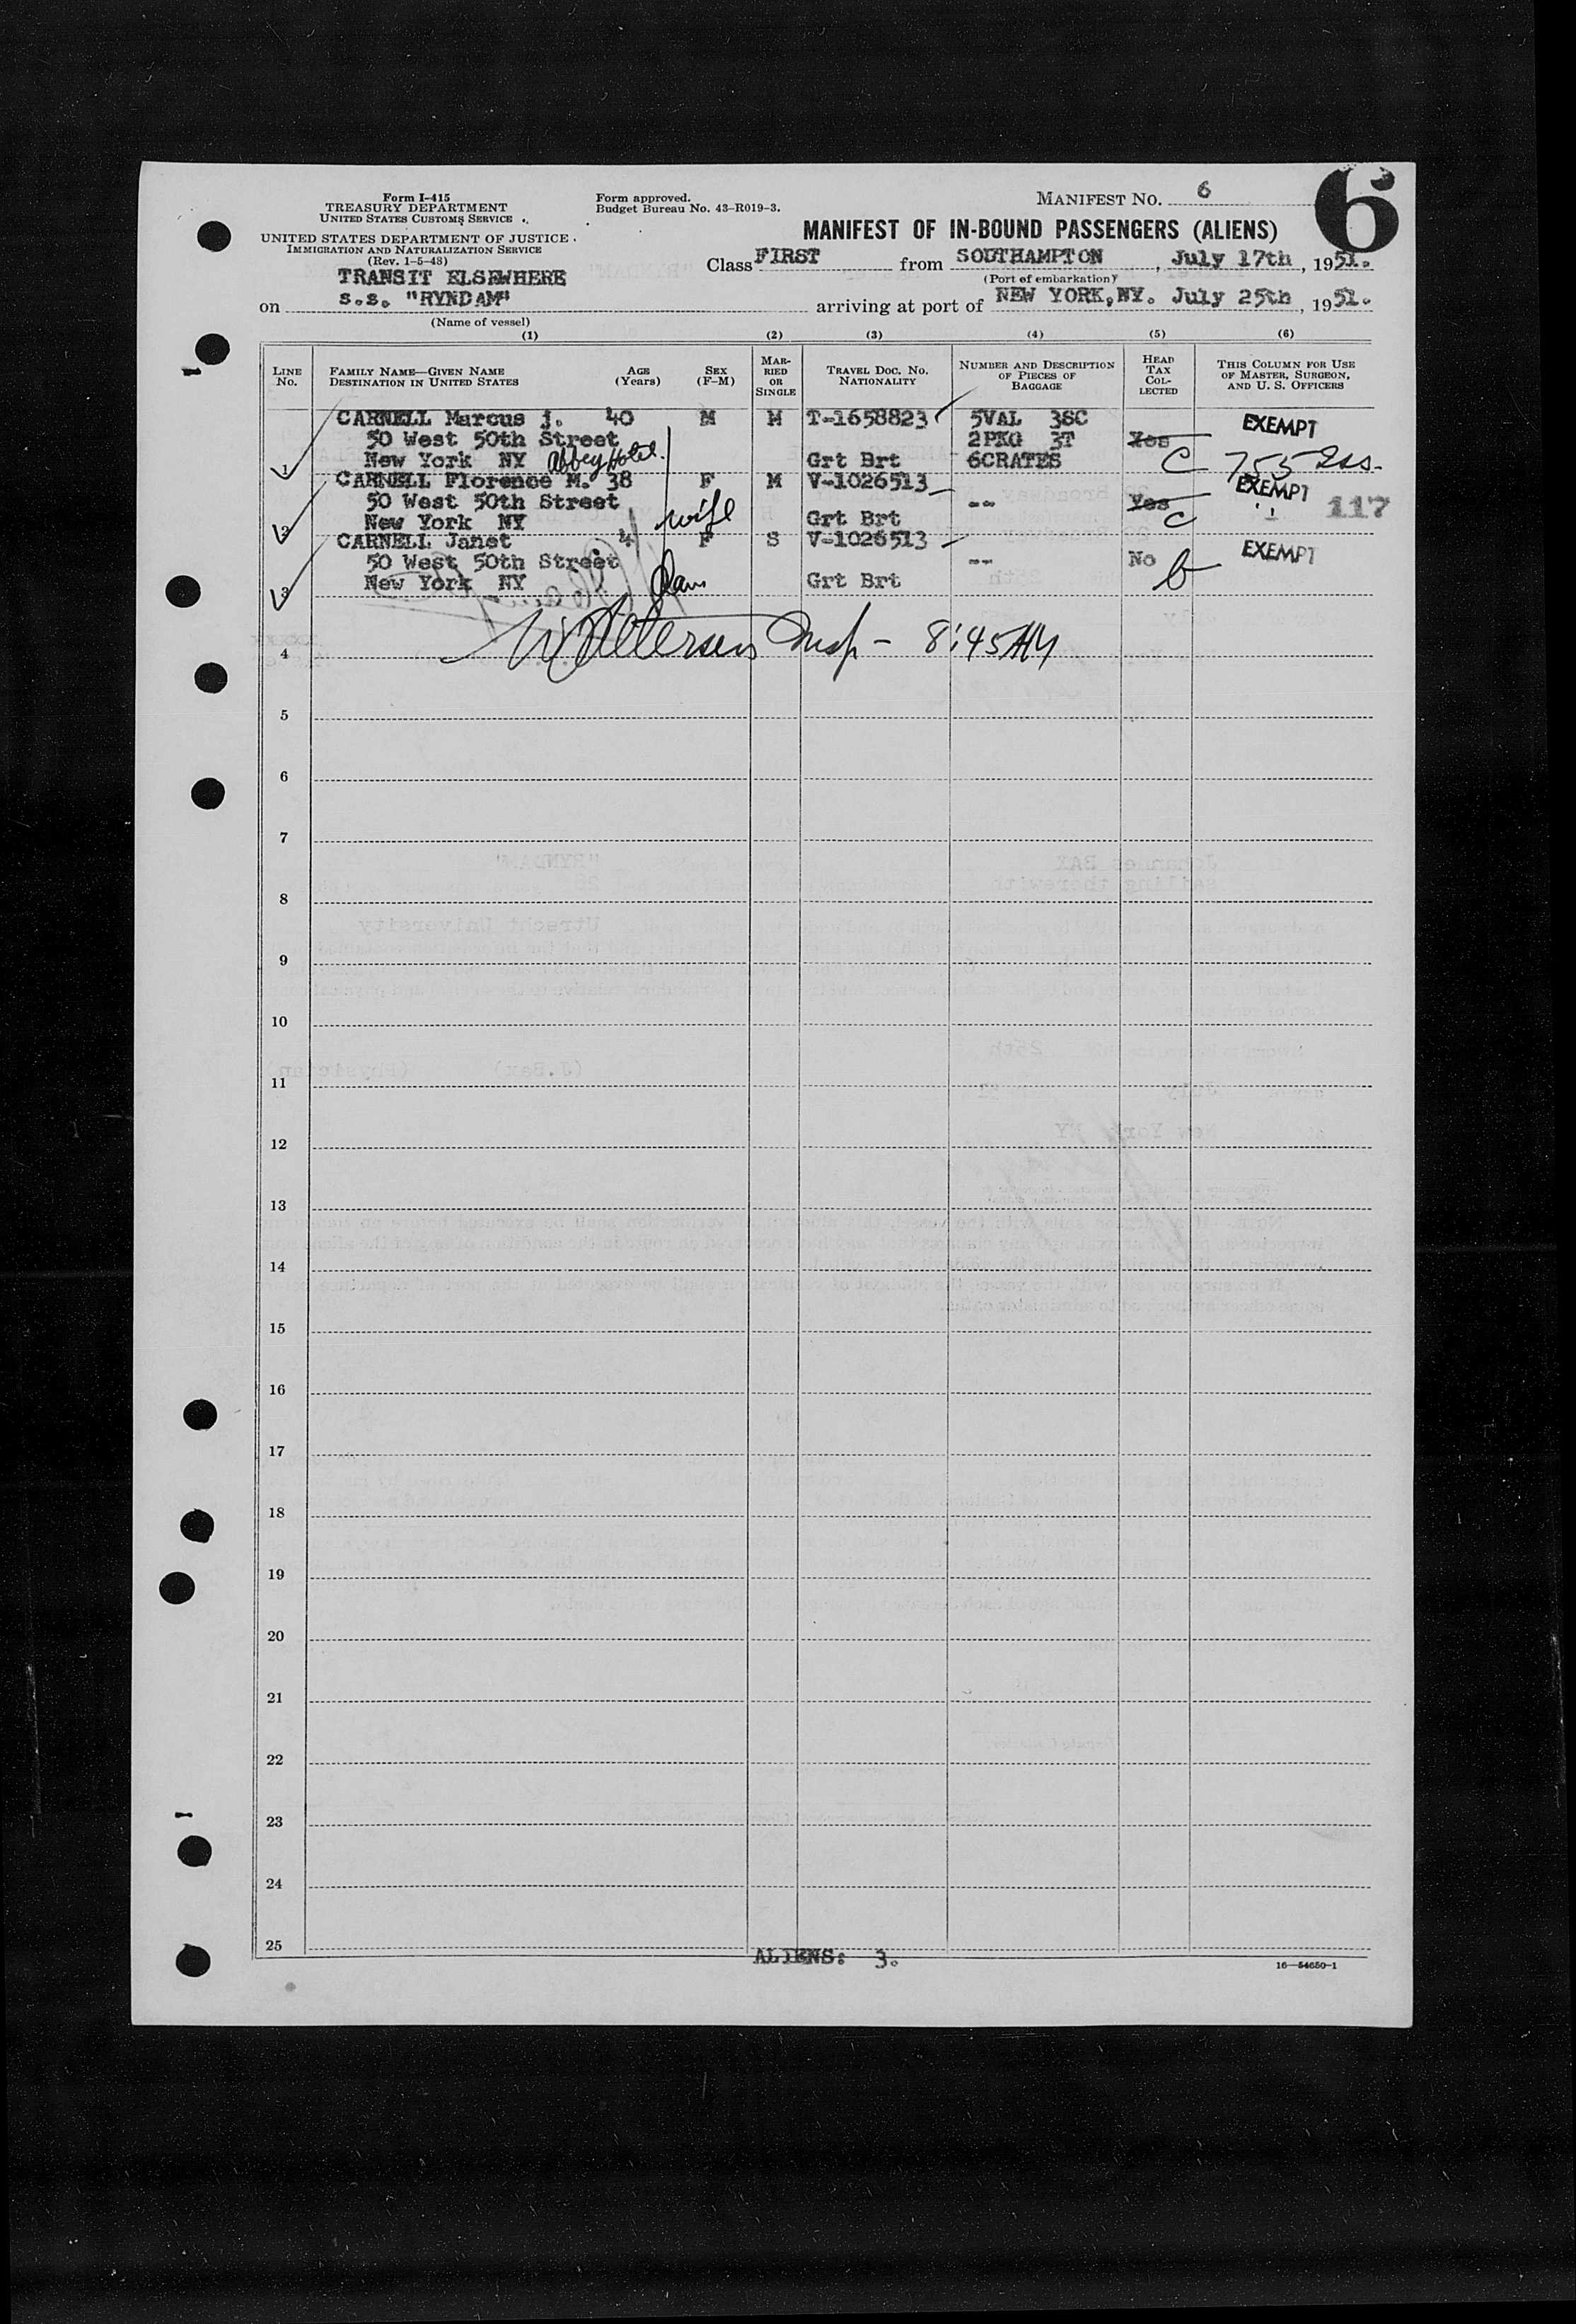 Form I-415
TREASURY DEPARTMENT
UNITED STATES CUSTOMS SERVICE
UNITED STATES DEPARTMENT OF JUSTICE
IMMIGRATION AND NATURALIZATION SERVICE
(Rev. 1-5-48)
Form approved.
Budget Bureau No. 43-R019-3.
MANIFEST NO. 6
6
MANIFEST OF IN-BOUND PASSENGERS (ALIENS)
Class FIRST from SOUTHAMPTON, July 17th, 1951.
(Port of embarkation)
TRANSIT ELSEWHERE
on s.s. "RYNDAM" arriving at port of NEW YORK,NY. July 25th, 1951.
(Name of vessel)
(1) (2) (3) (4) (5) (6)
LINE No. FAMILY NAME—GIVEN NAME DESTINATION IN UNITED STATES AGE (Years) SEX (F-M) MARRIED OR SINGLE TRAVEL DOC. NO. NATIONALITY NUMBER AND DESCRIPTION OF PIECES OF BAGGAGE HEAD TAX COLLECTED THIS COLUMN FOR USE OF MASTER, SURGEON, AND U. S. OFFICERS
CARNELL Marcus j. 40 M M T-1658823 5VAL 3SC EXEMPT
50 West 50th Street 2PKG 3T Yes
1 New York NY Abbey Hotel. Grt Brt 6CRATES C 755
CARNELL Florence M. 38 F M V-1026513 EXEMPT
50 West 50th Street wife -- Yes 117
2 New York NY Grt Brt C
CARNELL Janet 4 F S V-1026513 EXEMPT
50 West 50th Street -- No
3 New York NY Grt Brt b
4 Insp - 8:45 AM
5
6
7
8
9
10
11
12
13
14
15
16
17
18
19
20
21
22
23
24
25
ALIENS: 3.
16—54650-1